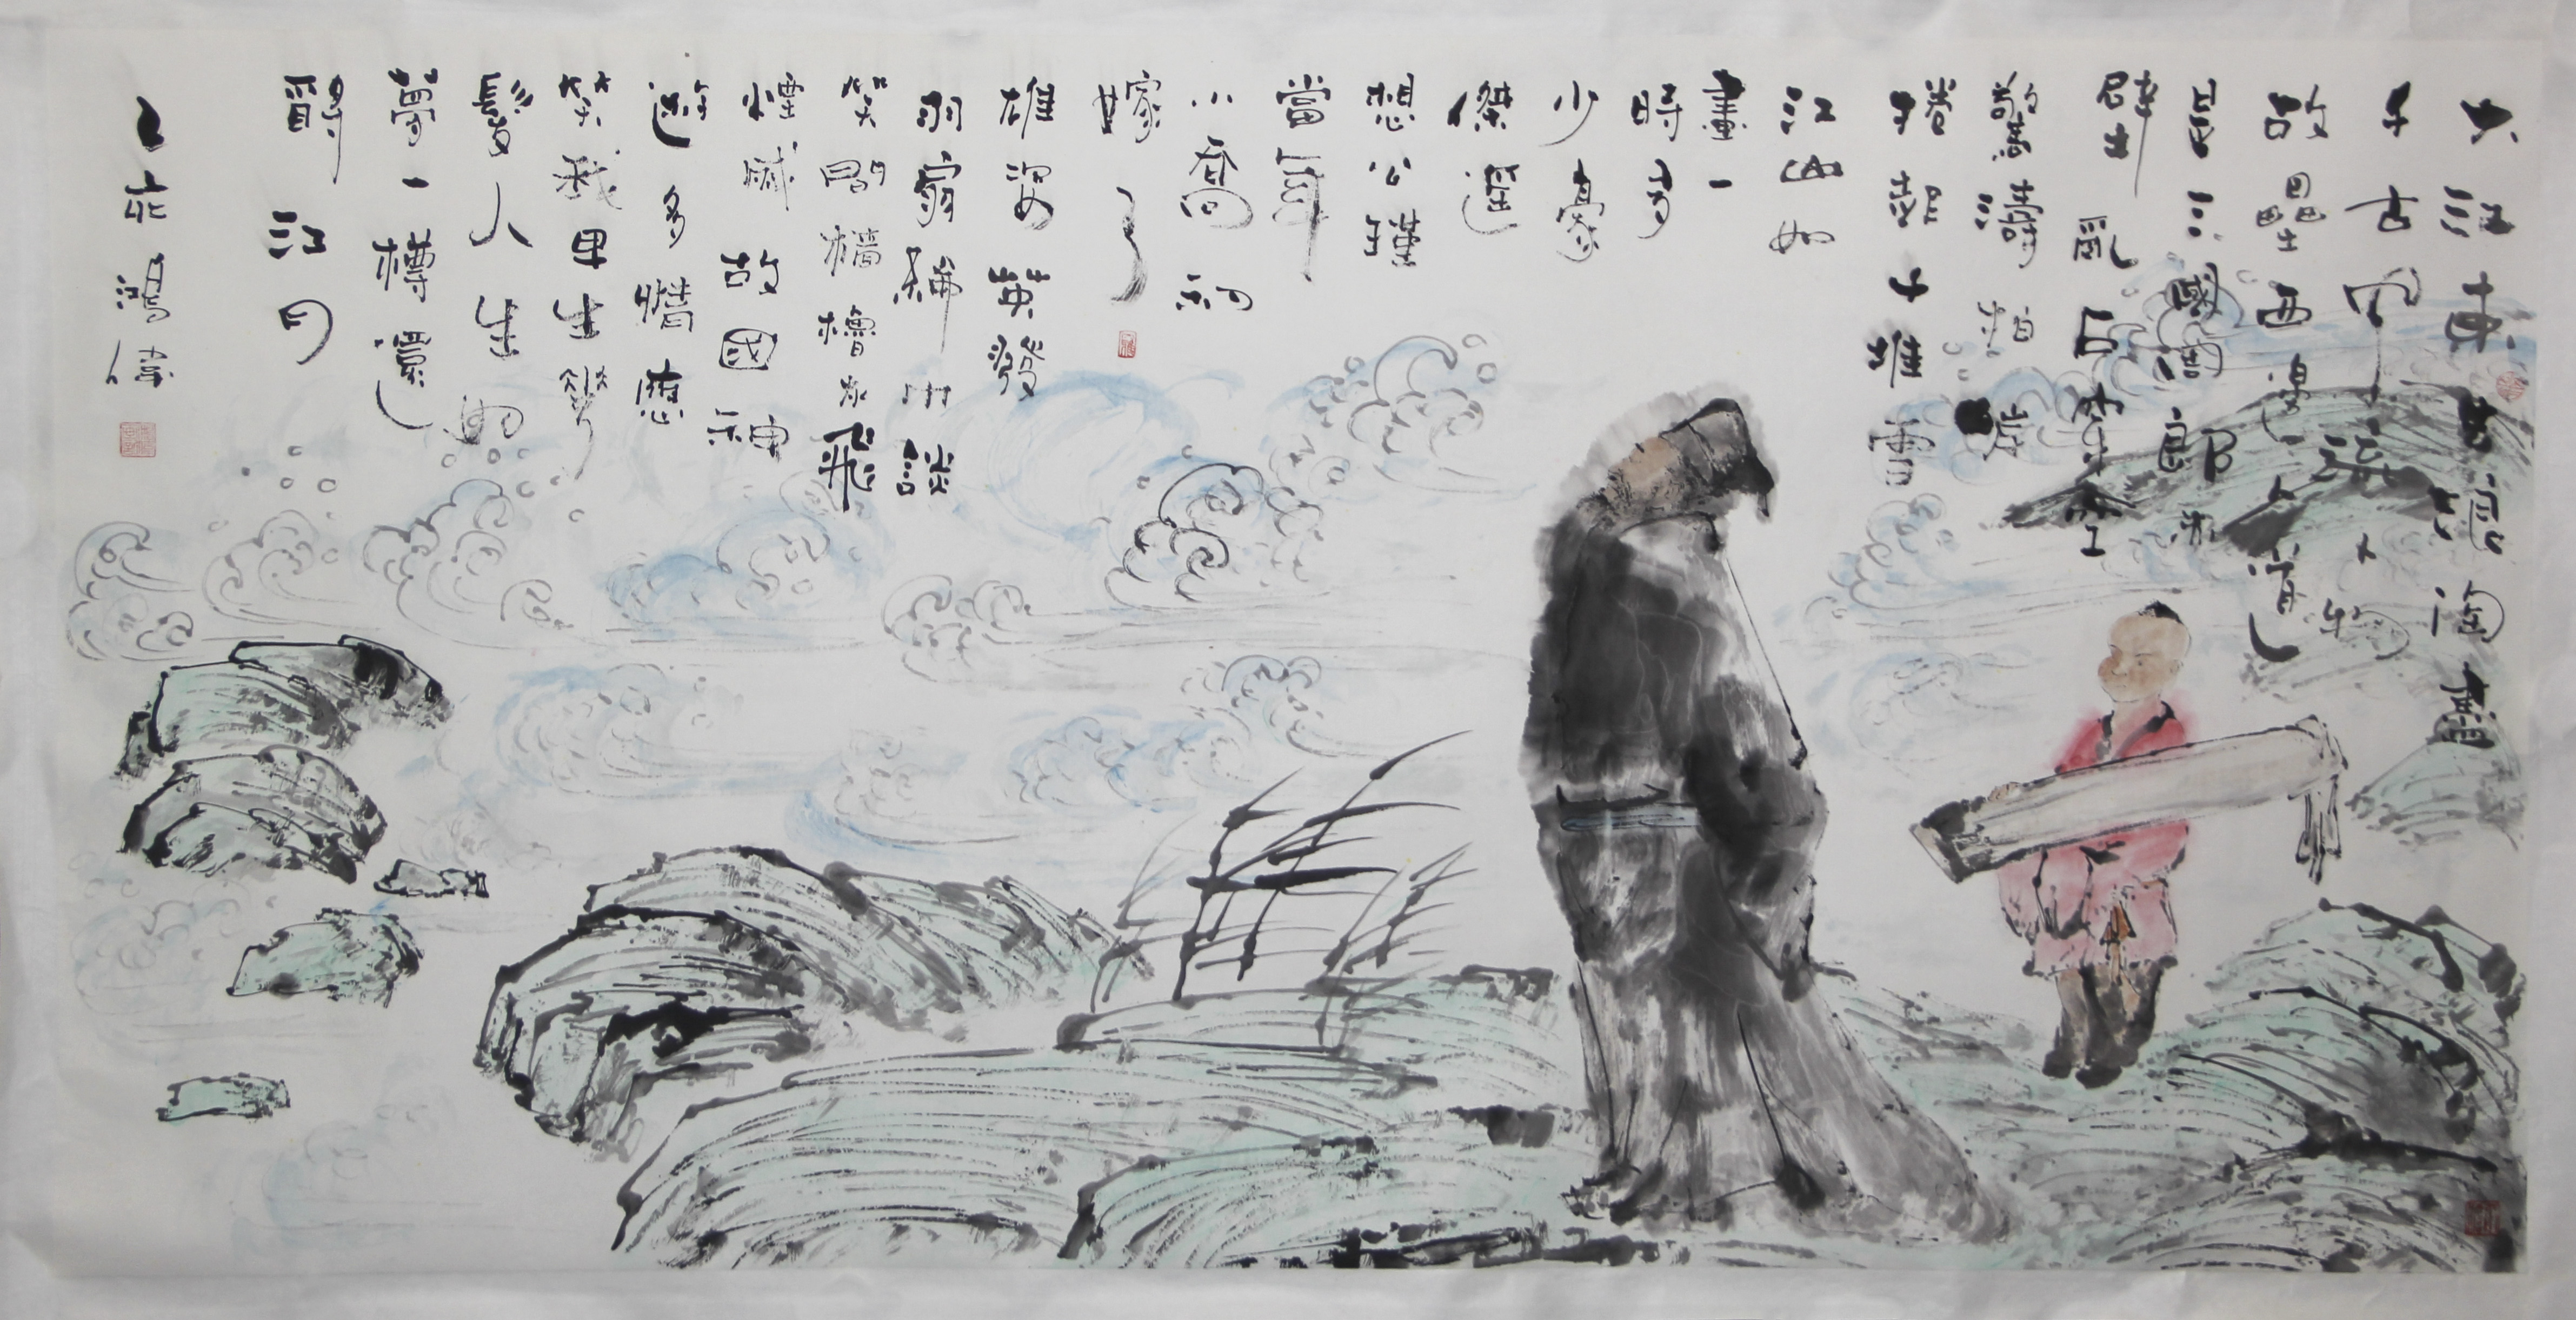 大江東去浪淘盡
千古風流人物
故壘西邊人道
是三國周郎赤
壁亂石穿空
驚濤拍岸
捲起千堆雪
江山如
畫一
時多
少豪
傑遙
想公瑾
當年
小喬初
嫁了
雄姿英發
羽扇綸巾談
笑間檣櫓灰飛
煙滅故國神
遊多情應
笑我早生華
髮人生如
夢一樽還
酹江月
鴻偉